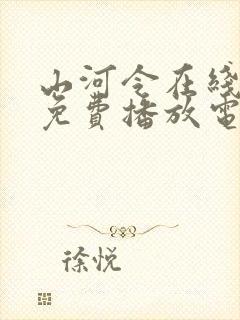 山河令在线
免費播放電
徐悦